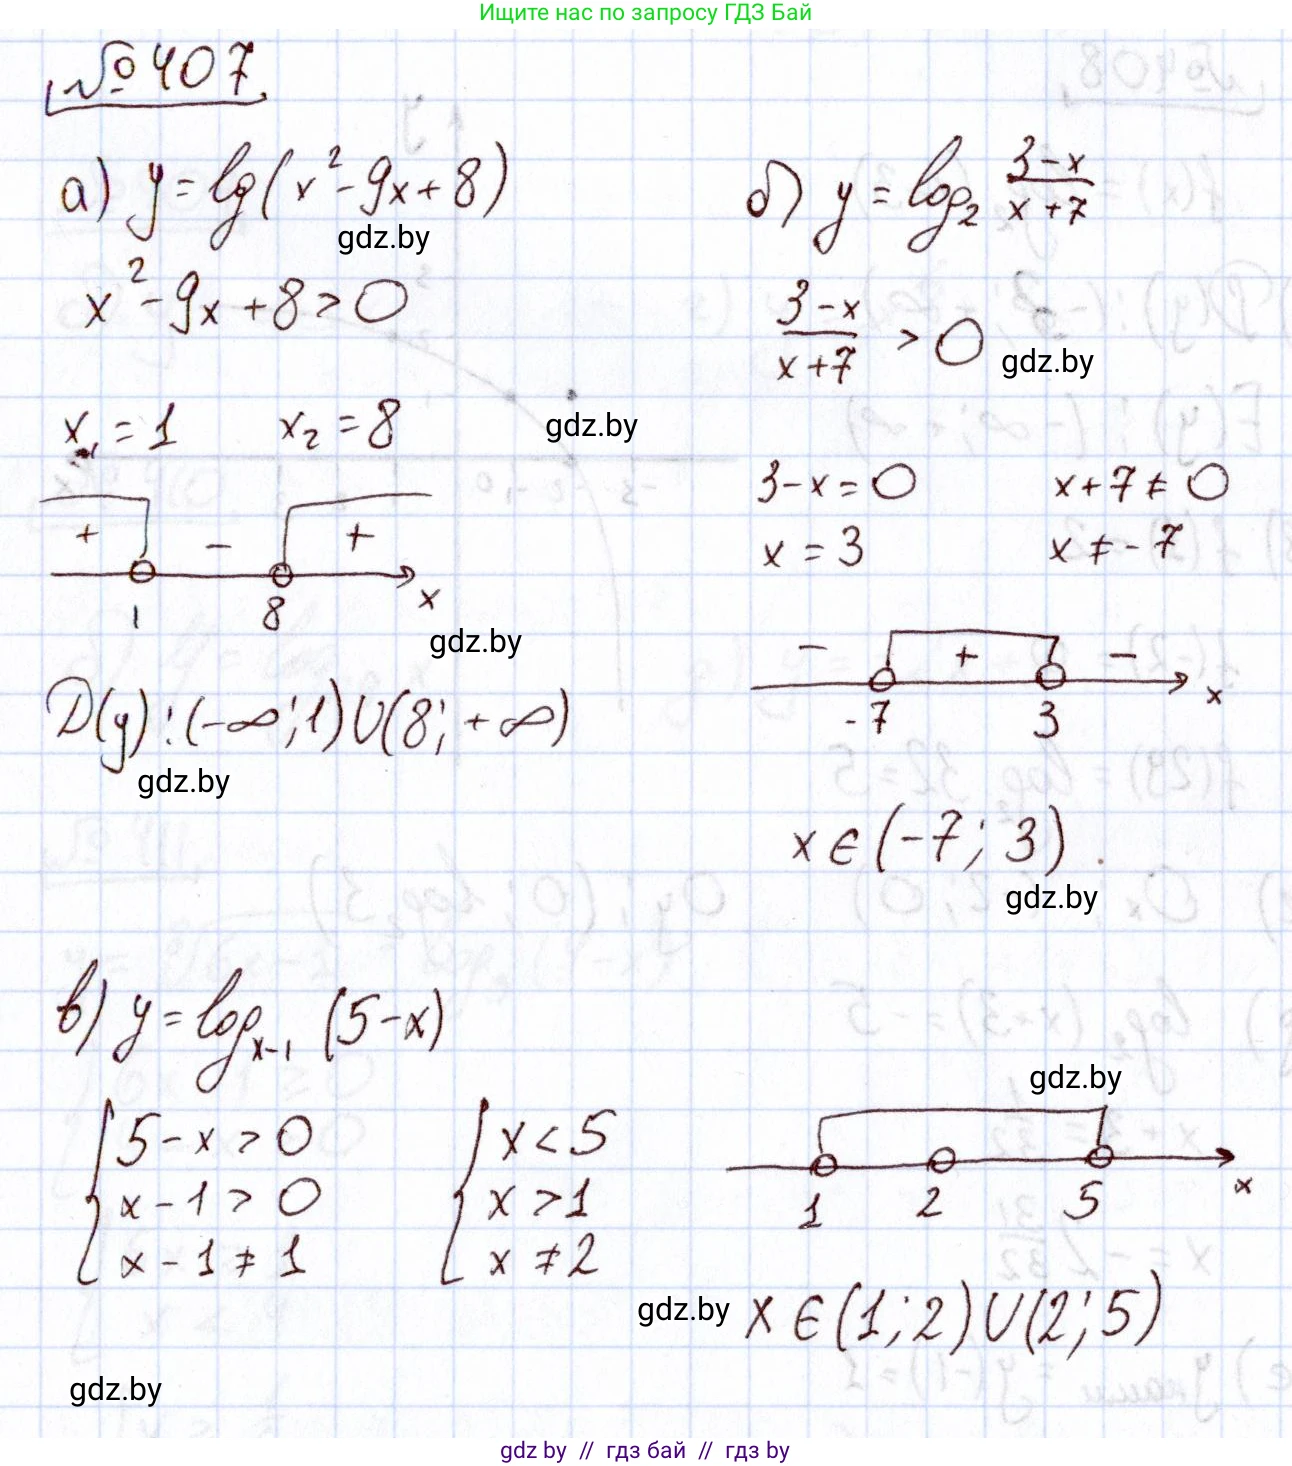 Ищите нас по запросу ГДЗ Бай
№ 407
а) y = lg(x² - 9x + 8)
gdz.by
x² - 9x + 8 > 0
x₁ = 1 x₂ = 8
gdz.by
+ - +
1 8 x
gdz.by
D(y): (-∞; 1) ∪ (8; +∞)
gdz.by
б) y = log₂ (3 - x)/(x + 7)
(3 - x)/(x + 7) > 0
gdz.by
3 - x = 0 x + 7 ≠ 0
x = 3 x ≠ -7
- + -
-7 3 x
x ∈ (-7; 3).
gdz.by
в) y = log_{x-1} (5 - x)
{ 5 - x > 0 { x < 5
x - 1 > 0 x > 1
x - 1 ≠ 1 x ≠ 2
gdz.by
1 2 5 x
gdz.by
x ∈ (1; 2) ∪ (2; 5)
gdz.by
gdz by // гдз бай // гдз by